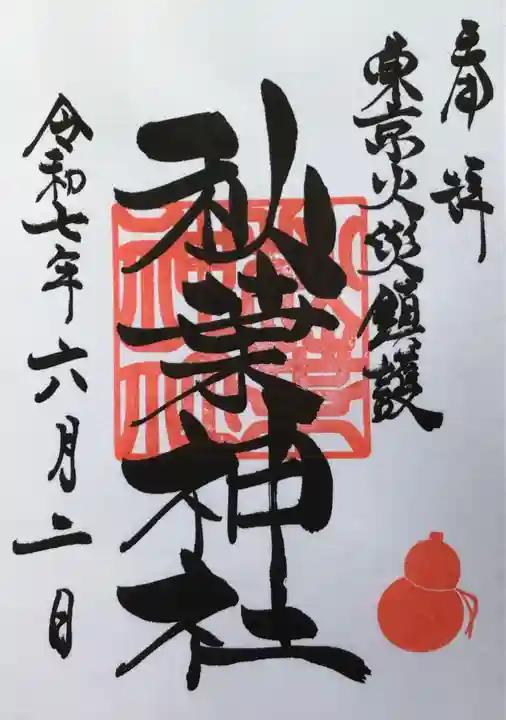 奉拝
東京火災鎮護
秋葉神社
令和七年六月二日